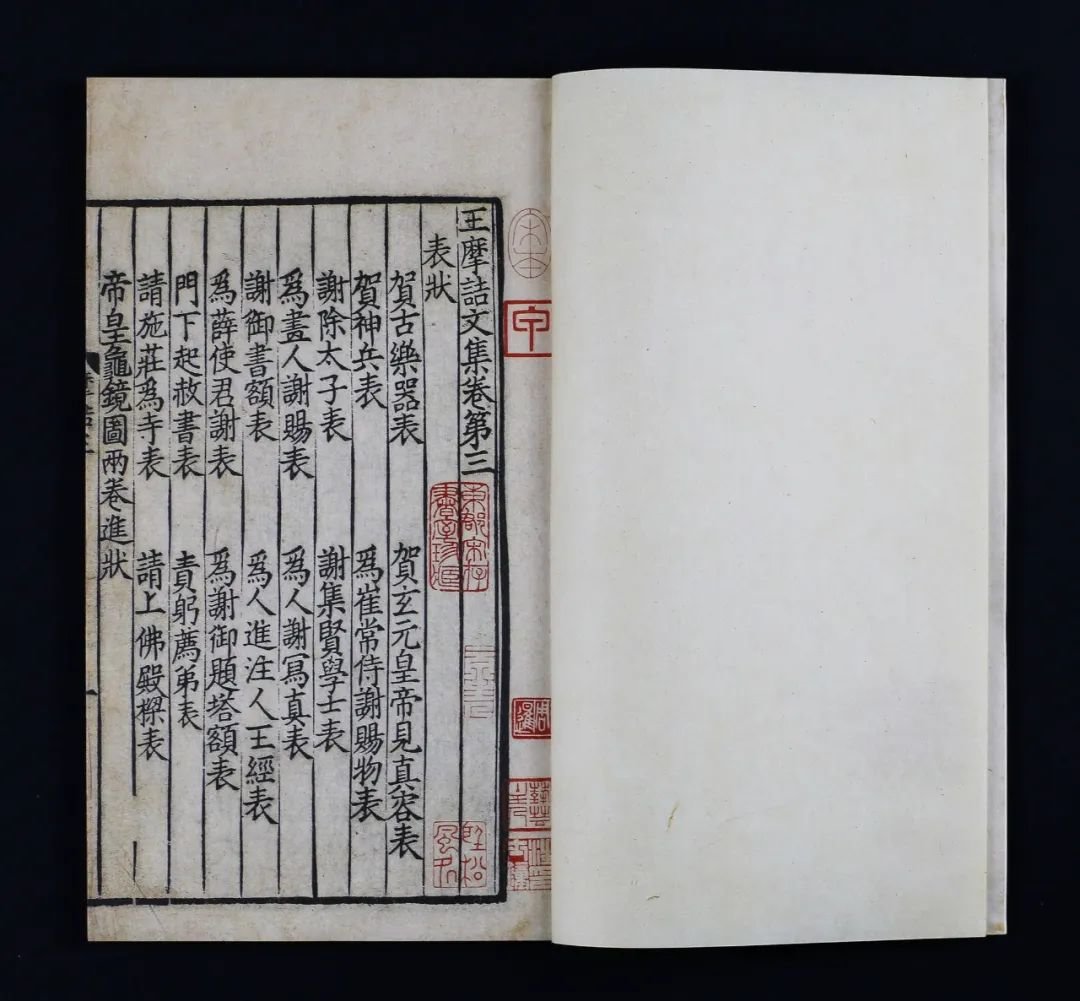 王摩詰文集卷第三
表狀
賀古樂器表 賀玄元皇帝見真容表
賀神兵表 為崔常侍謝賜物表
謝除太子表 謝集賢學士表
為畫人謝賜表 為人謝寫真表
謝御書額表 為人進注人王經表
為薛使君謝表 為謝御題塔額表
門下起赦書表 責躬薦弟表
請施莊為寺表 請上佛殿樑表
帝皇龜鏡圖兩卷進狀
一
宋本